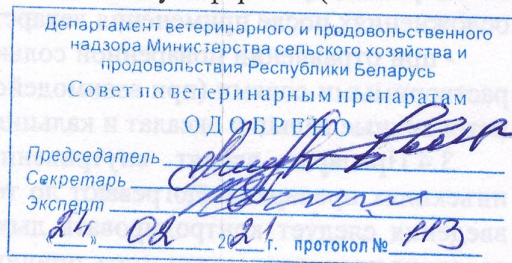 Департамент ветеринарного и продовольственного
надзора Министерства сельского хозяйства и
продовольствия Республики Беларусь
Совет по ветеринарным препаратам
ОДОБРЕНО
Председатель
Секретарь
Эксперт
"24" 02 2021 г. протокол № 113